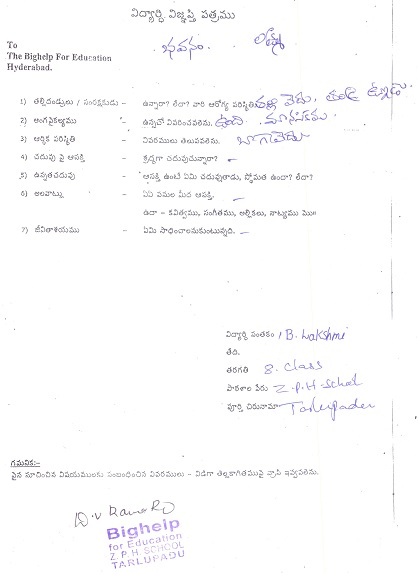 విద్యార్థి విజ్ఞప్తి పత్రము
To
The Bighelp For Education
Hyderabad.
1) తల్లిదండ్రులు / సంరక్షకుడు - ఉన్నారా? లేదా? వారి ఆరోగ్య పరిస్థితి తల్లి లేదు, తండ్రి ఉన్నాడు
2) అంగవైకల్యము - ఉన్నచో వివరించవలెను. ఉంది.
3) ఆర్థిక పరిస్థితి - వివరములు తెలుపవలెను. బాగాలేదు
4) చదువు పై ఆసక్తి - శ్రద్ధగా చదువుచున్నారా? -
5) ఉన్నతచదువు - ఆసక్తి ఉంటే ఏమి చదువుతాడు, స్తోమత ఉందా? లేదా?
6) అలవాట్లు - ఏఏ పనుల మీద ఆసక్తి. -
ఉదా - కవిత్వము, సంగీతము, అల్లికలు, నాట్యము మొ॥
7) జీవితాశయము - ఏమి సాధించాలనుకుంటున్నది. -
విద్యార్థి సంతకం B. Lakshmi
తేది.
తరగతి 8. class
పాఠశాల పేరు Z.P.H-School
పూర్తి చిరునామా Tarlupadu
గమనిక:-
పైన సూచించిన విషయములకు సంబంధించిన వివరములు - విడిగా తెల్లకాగితముపై వ్రాసి ఇవ్వవలెను.
Bighelp
for Education
Z.P.H. SCHOOL
TARLUPADU